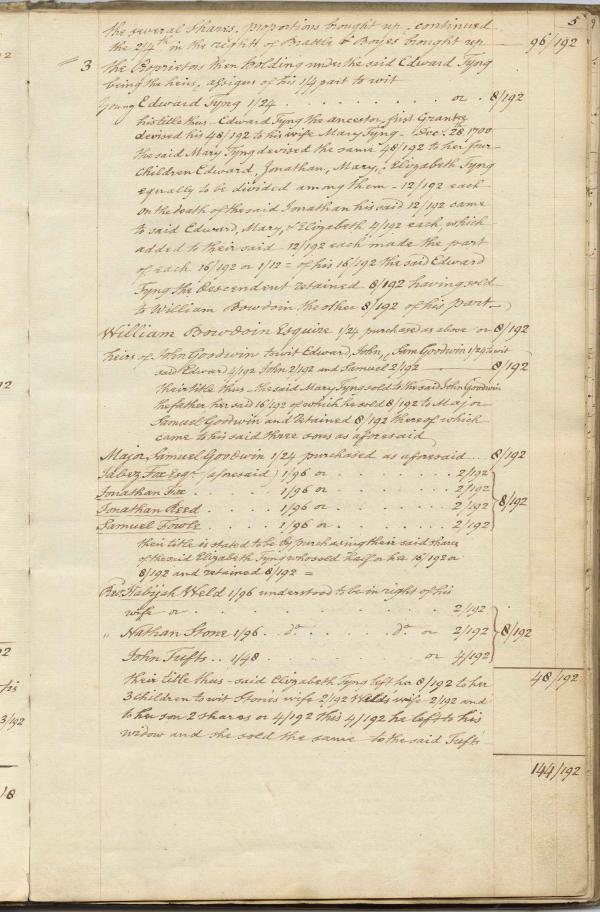 5
the several Shares, proportions brought up, continued
the 2/4th in the rights of Brattle & Boyes brought up 96/192
3 the Proprietors then holding under the said Edward Tyng
being the heirs, assigns of his 1/4 part to wit
Young Edward Tyng 1/24 . . . . . . . or . 8/192
his title thus - Edward Tyng the ancestor, first Grantee
devised his 48/192 to his wife Mary Tyng - Decr. 28, 1700
the said Mary Tyng devised the same 48/192 to her four
Children Edward, Jonathan, Mary, & Elizabeth Tyng
equally to be divided among them - 12/192 each
on the death of the said Jonathan his said 12/192 came
to said Edward, Mary, & Elizabeth 4/192 each, which
added to their said 12/192 each made the part
of each 16/192 or 1/12 = of his 16/192 the said Edward
Tyng the Descendent retained 8/192 having sold
to William Bowdoin the other 8/192 of his part
William Bowdoin Esquire 1/24 purchased as above or 8/192
heirs of John Goodwin to wit Edward, John, Sam Goodwin 1/24 to wit
said Edward 4/192 John 2/192 and Samuel 2/192 8/192
their title thus - the said Mary Tyng sold to the said John Goodwin
the father her said 16/192 of which he sold 8/192 to Major
Samuel Goodwin and retained 8/192 thereof which
came to his said three sons as aforesaid
Major Samuel Goodwin 1/24 purchased as aforesaid . . 8/192
Jabez Fox Esqr. (aforesaid) 1/96 or . . . . . . 2/192
Jonathan Fox . . . . 1/96 or . . . . . . 2/192
Jonathan Reed . . . . 1/96 or . . . . . . 2/192 8/192
Samuel Fowle . . . . 1/96 or . . . . . . 2/192
their title is stated to be by purchasing their said shares
of the said Elizabeth Tyng who sold half or her 16/192 or
8/192 and retained 8/192 =
Rev. Habijah Weld 1/96 understood to be in right of his
wife or . . . . . . . . . 2/192
" Nathan Stone 1/96 . do. . . . . do. or 2/192 8/192
John Tufts . . 1/48 . . . . . . or 4/192
48/192
their title thus - said Elizabeth Tyng left her 8/192 to her
3 children to wit Stone's wife 2/192 Weld's wife 2/192 and
to her son 2 shares or 4/192 this 4/192 he left to his
widow and she sold the same to the said Tufts
144/192